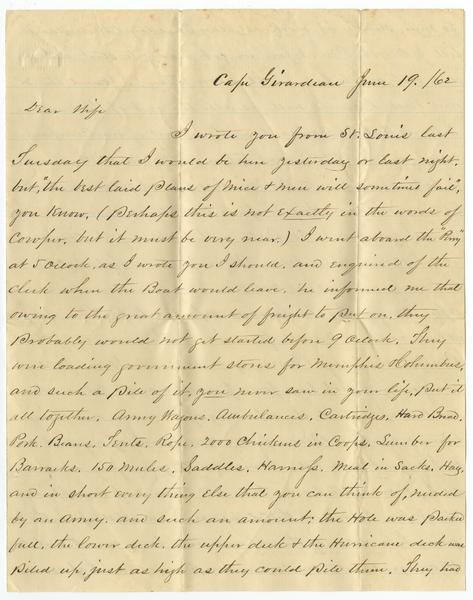 Cape Girardeau June 19. /62
Dear Wife
I wrote you from St. Louis last
Tuesday that I would be here yesterday or last night,
but, "the best laid plans of Mice & men will sometimes fail",
you know, (Perhaps this is not exactly in the words of
Cowper, but it must be very near.) I went aboard the "Perry"
at 5 oclock, as I wrote you I should, and enquired of the
Clerk when the Boat would leave, he informed me that
owing to the great amount of freight to put on, they
probably would not get started before 9 oclock. They
were loading government stores for Memphis & Columbus,
and such a pile of it, you never saw in your life, put it
all together. Army Wagons, Ambulances, Cartridges, Hard Bread,
Pork, Beans, Tents, Rope, 2000 Chickens in Coops, Lumber for
Barracks, 150 Mules, Saddles, Harness, Meal in Sacks, Hay,
and in short every thing else that you can think of, needed
by an Army, and such an amount; the Hole was packed
full, the lower deck, the upper deck & the Hurricane deck was
piled up, just as high as they could pile them. They had